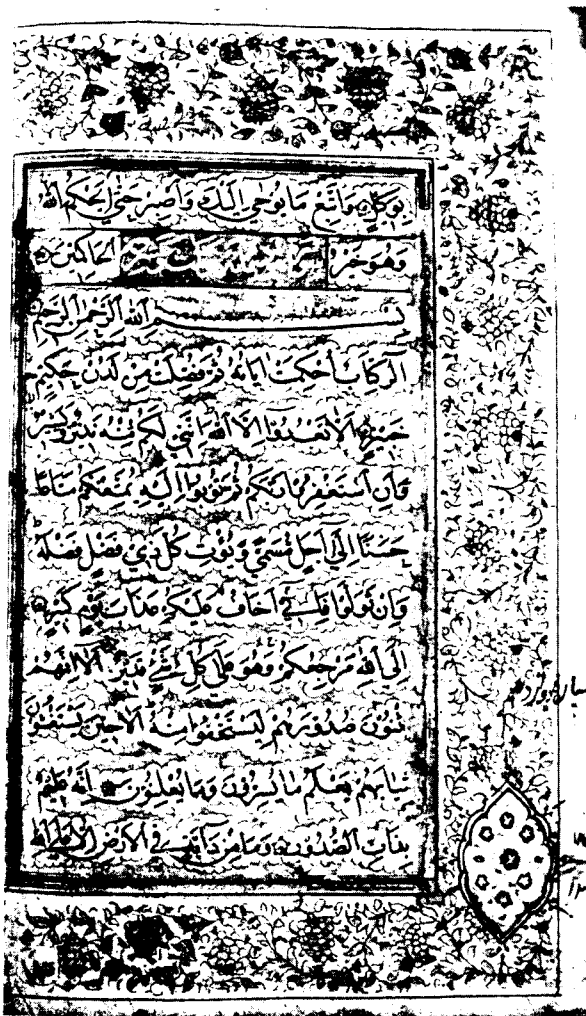 بوكيل واتبع ما يوحى اليك واصبر حتى يحكم الله
وهو خير الحاكمين
بسم الله الرحمن الرحيم
الر كتاب احكمت اياته ثم فصلت من لدن حكيم
خبير الا تعبدوا الا الله انني لكم منه نذير وبشير
وان استغفروا ربكم ثم توبوا اليه يمتعكم متاعا
حسنا الى اجل مسمى ويؤت كل ذي فضل فضله
وان تولوا فاني اخاف عليكم عذاب يوم كبير
الى الله مرجعكم وهو على كل شيء قدير الا انهم
يثنون صدورهم ليستخفوا منه الا حين يستغشون
ثيابهم يعلم ما يسرون وما يعلنون انه عليم
بذات الصدور وما من دابة في الارض الا على الله